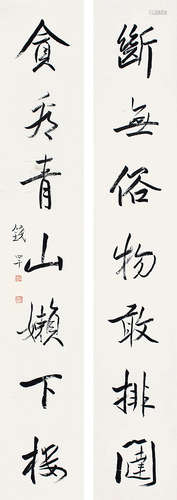 斷無俗物敢排闥
貪看青山嬾下樓
錢罕